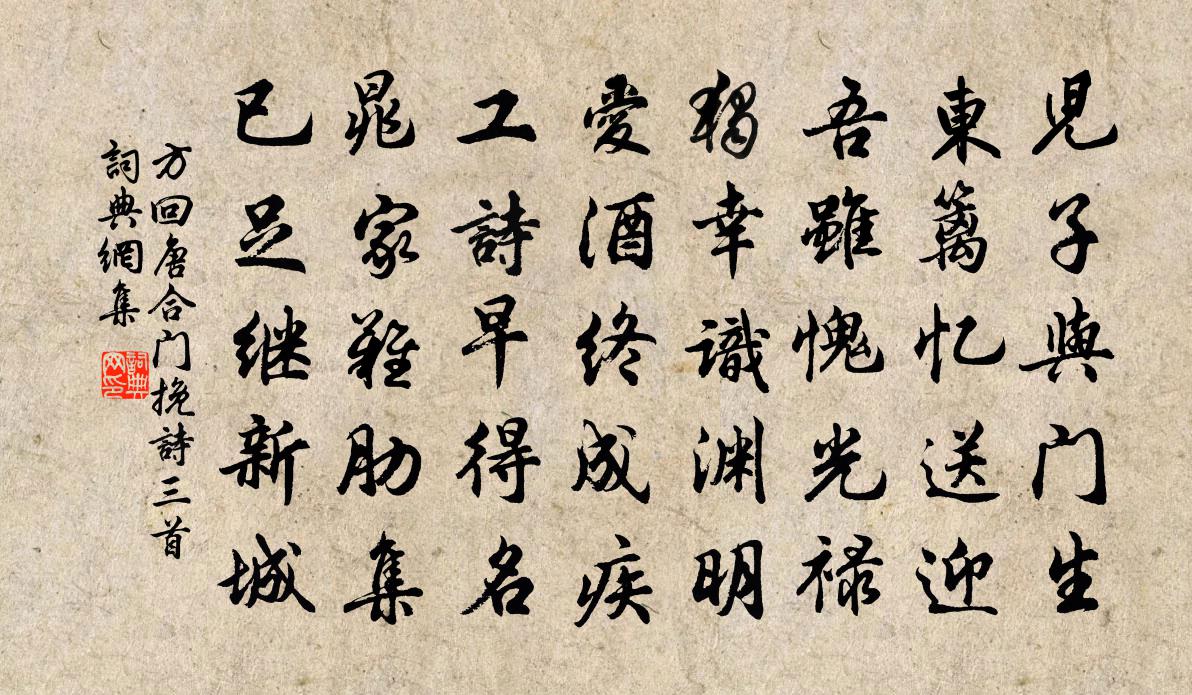 児子與门生
東篱忆送迎
吾雖愧光禄
獨幸識渊明
愛酒终成疾
工詩早得名
晁家雞肋集
已足继新城
方回唐合门挽詩三首
詞典網集
詞典网印